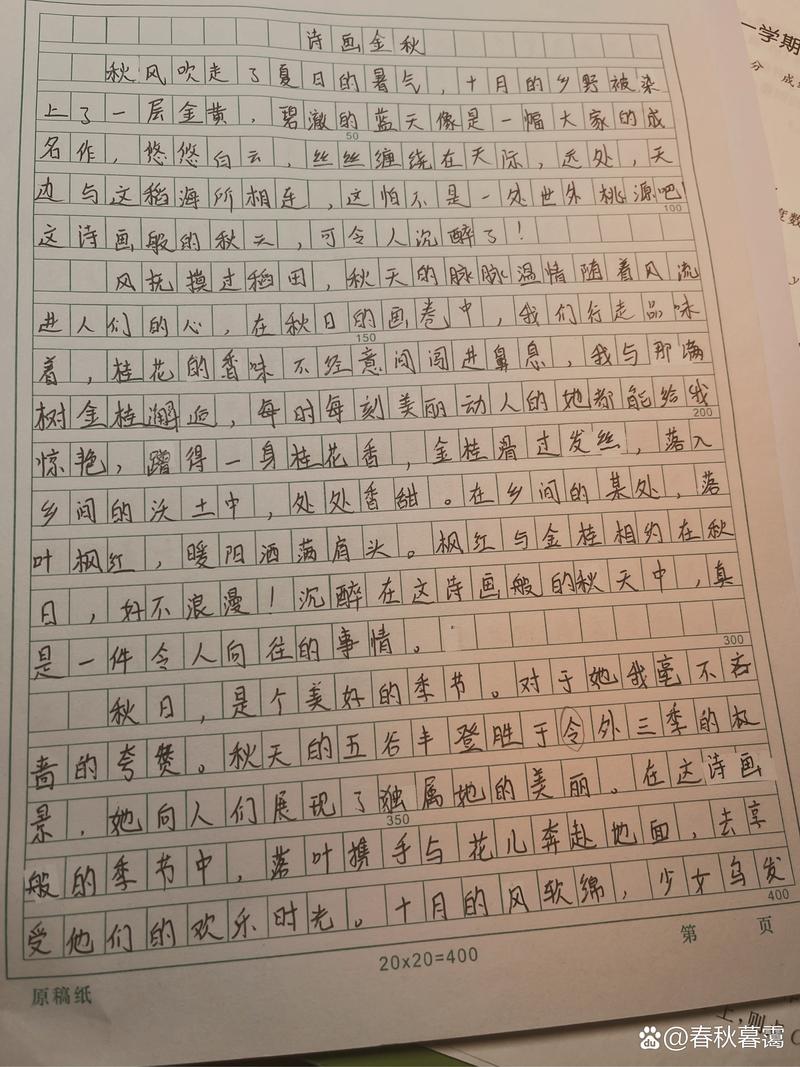 诗画金秋
秋风吹走了夏日的暑气，十月的乡野被染
上了一层金黄，碧澈的蓝天像是一幅大家的成
50
名作，悠悠白云，丝丝缠绕在天际，远处，天
边与这稻海所相连，这怕不是一处世外桃源吧
100
这诗画般的秋天，可令人沉醉了！
风抚摸过稻田，秋天的脉脉温情随着风流
进人们的心，在秋日的画卷中，我们行走品味
150
着，桂花的香味不经意间闯进鼻息，我与那满
树金桂邂逅，每时每刻美丽动人的她都能给我
200
惊艳，蹭得一身桂花香，金桂滑过发丝，落入
乡间的沃土中，处处香甜。在乡间的某处，落
叶枫红，暖阳洒满肩头。枫红与金桂相约在秋
日，好不浪漫！沉醉在这诗画般的秋天中，真
是一件令人向往的事情。
300
秋日，是个美好的季节。对于她我毫不吝
啬的夸赞。秋天的五谷丰登胜于令外三季的极
景，她向人们展现了独属她的美丽。在这诗画
350
般的季节中，落叶携手与花儿奔赴地面，去享
受他们的欢乐时光。十月的风软绵，少女乌发
400
20×20=400
第 页
原稿纸
一学期
分 成
上，则
du @春秋暮霭